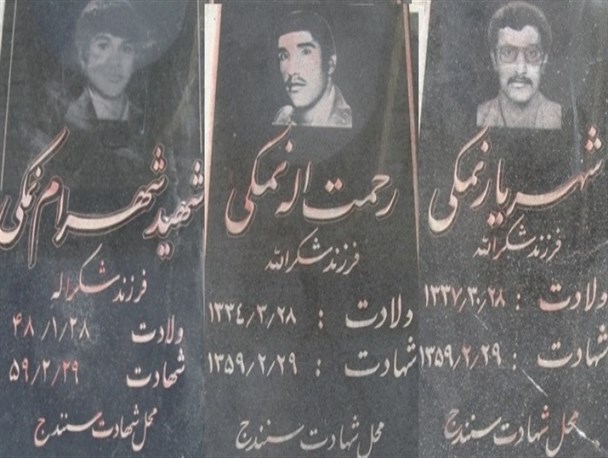 شهریار نمکی
فرزند شکرالله
ولادت : ۱۳۳۷/۳/۲۸
شهادت : ۱۳۵۹/۲/۲۹
محل شهادت سنندج
رحمت اله نمکی
فرزند شکرالله
ولادت : ۱۳۳۴/۳/۲۸
شهادت : ۱۳۵۹/۲/۲۹
محل شهادت سنندج
شهید شهرام نمکی
فرزند شکراله
ولادت ۴۸/۱/۲۸
شهادت ۵۹/۲/۲۹
محل شهادت سنندج